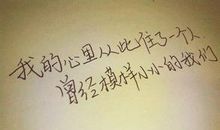 我的心里从此住了一个人
曾经模样小小的我们